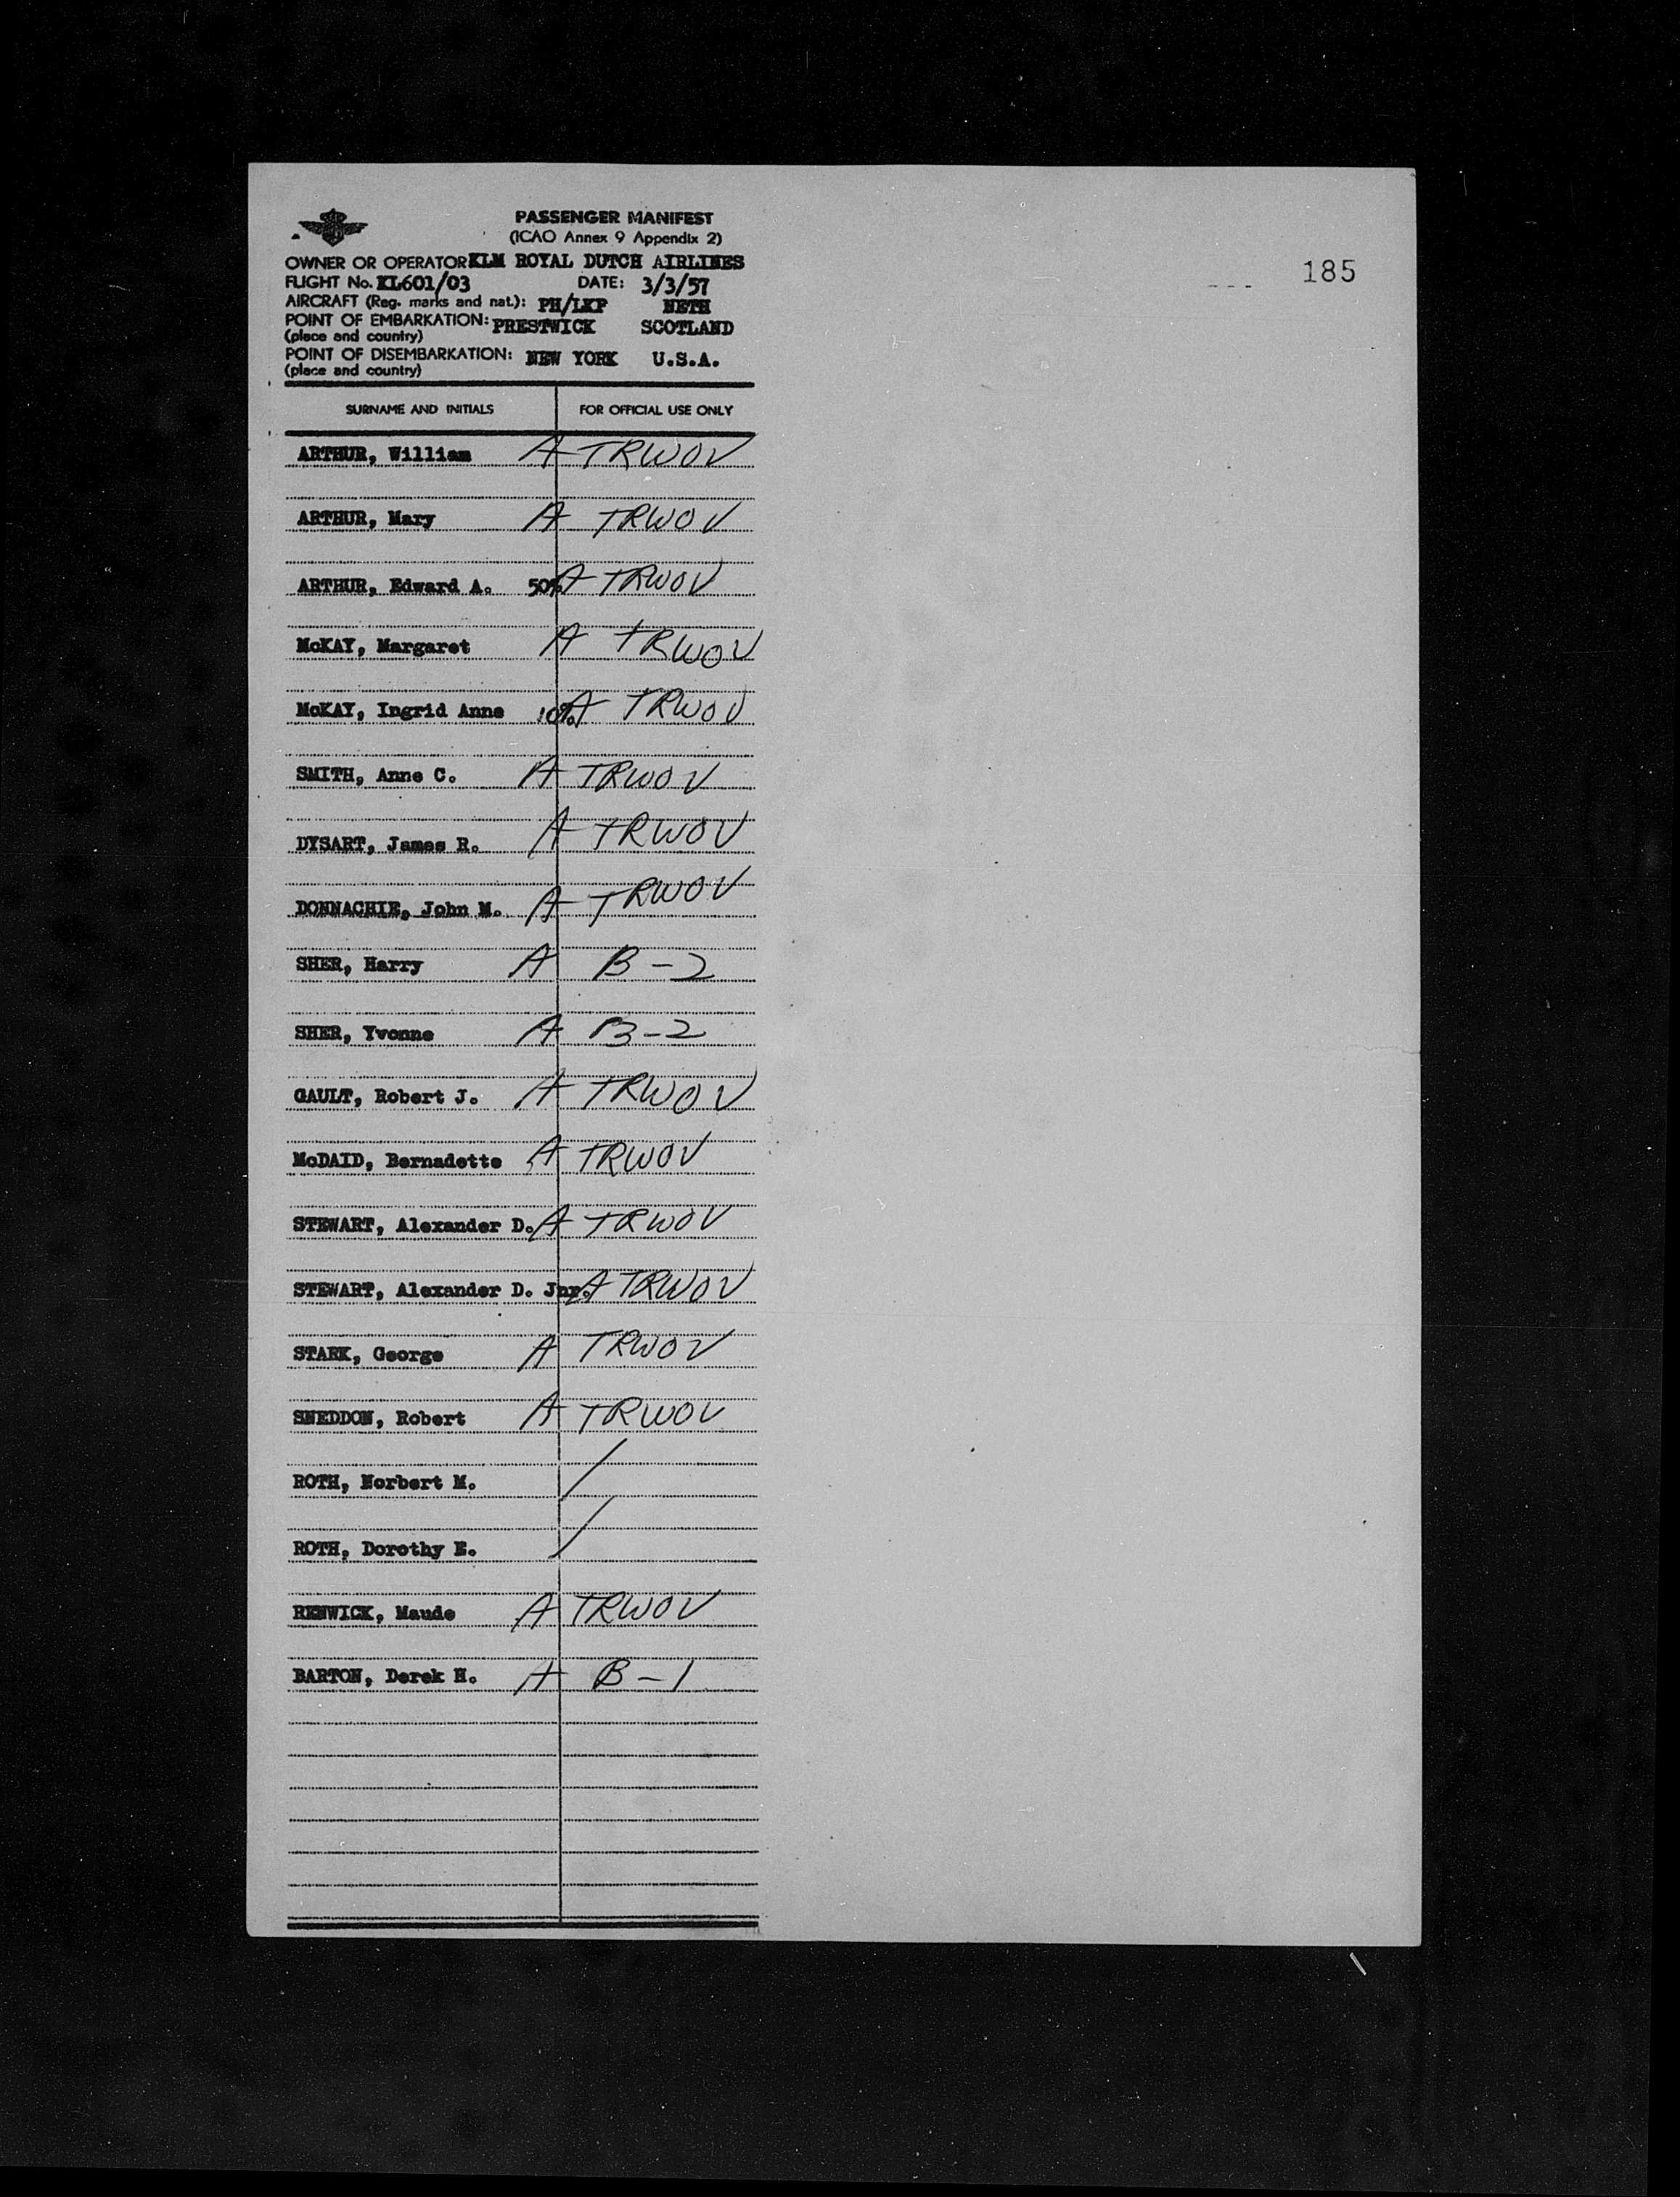 PASSENGER MANIFEST
(ICAO Annex 9 Appendix 2)
185
OWNER OR OPERATOR KLM ROYAL DUTCH AIRLINES
FLIGHT No. KL601/03 DATE: 3/3/57
AIRCRAFT (Reg. marks and nat.): PH/LKP NETH
POINT OF EMBARKATION: PRESTWICK SCOTLAND
(place and country)
POINT OF DISEMBARKATION: NEW YORK U.S.A.
(place and country)
SURNAME AND INITIALS FOR OFFICIAL USE ONLY
ARTHUR, William A TRWOV
ARTHUR, Mary A TRWOV
ARTHUR, Edward A. 50% A TRWOV
McKAY, Margaret A TRWOV
McKAY, Ingrid Anne 10% A TRWOV
SMITH, Anne C. A TRWOV
DYSART, James R. A TRWOV
DONNACHIE, John M. A TRWOV
SHER, Harry A B-2
SHER, Yvonne A B-2
GAULT, Robert J. A TRWOV
McDAID, Bernadette A TRWOV
STEWART, Alexander D. A TRWOV
STEWART, Alexander D. Jnr. A TRWOV
STARK, George A TRWOV
SNEDDON, Robert A TRWOV
ROTH, Norbert M. /
ROTH, Dorothy E. /
RENWICK, Maude A TRWOV
BARTON, Derek H. A B-1